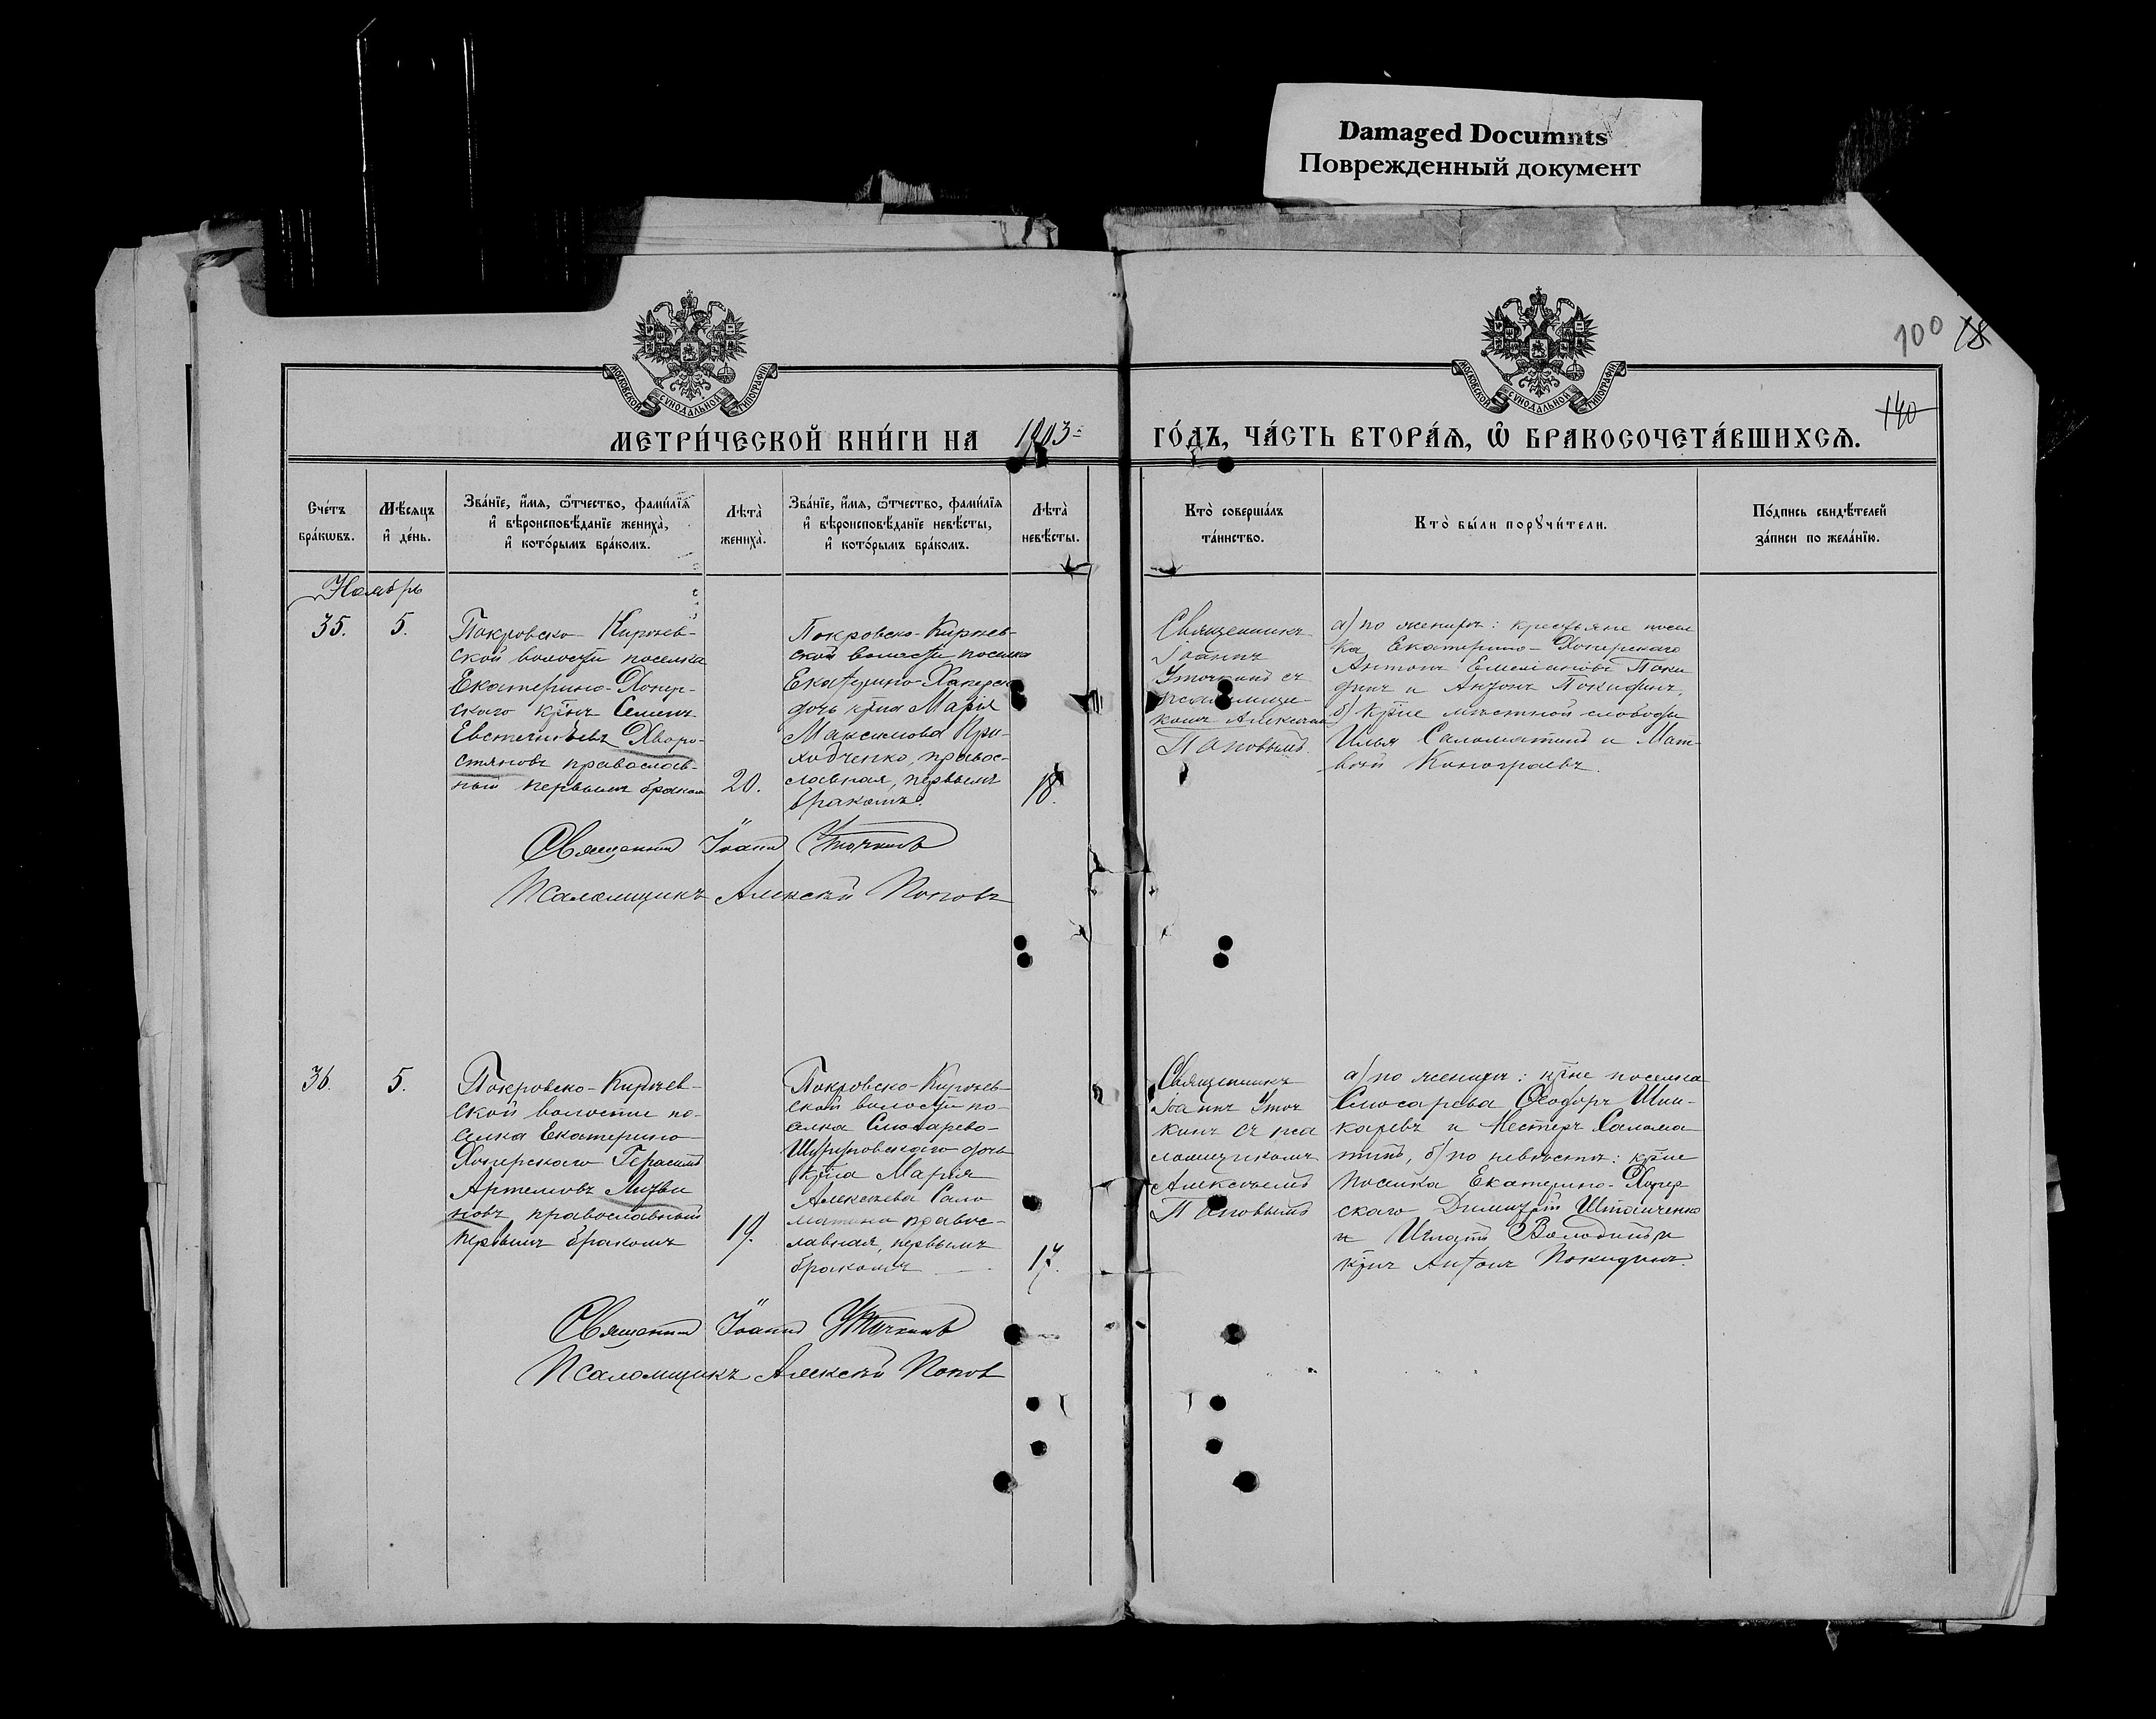 Damaged Documnts
Поврежденный документ
100 18
140
МОСКОВСКОЙ СѴНОДАЛЬНОЙ ТИПОГРАФІИ
МОСКОВСКОЙ СѴНОДАЛЬНОЙ ТИПОГРАФІИ
МЕТРИ́ЧЕСКОЙ КНИ́ГИ НА 1903 ГО́ДЪ, ЧА́СТЬ ВТОРА́Ѧ, Ѽ БРАКОСОЧЕТА́ВШИХСѦ.
Сче́тъ
бра́кѡвъ.
Мѣ́сяцъ
и҆ де́нь.
Зва́нїе, и҆́мѧ, ѻ҆́тчество, фами́лїѧ
и҆ вѣроисповѣ́данїе жениха̀,
и҆ кото́рымъ бра́комъ.
Лѣта̀
жениха̀.
Зва́нїе, и҆́мѧ, ѻ҆́тчество, фами́лїѧ
и҆ вѣроисповѣ́данїе невѣ́сты,
и҆ кото́рымъ бра́комъ.
Лѣта̀
невѣ́сты.
Кто̀ соверша́лъ
та́инство.
Кто̀ бы́ли порꙋчи́тели.
По́дпись свидѣ́телей
за́писи по жела́нїю.
Ноябрь
35.
5.
Покровско-Кирѣев-
ской волости поселка
Екатерино-Хопер-
скаго кр̃нъ Семенъ
Евстигнѣевъ Хворо-
стяновъ православ-
ный первымъ бракомъ
20.
Покровско-Кирѣев-
ской волости поселка
Екатерино-Хаперск
дочь кр̃на Марія
Максимова При-
ходченко, правос-
лавная, первымъ
бракомъ.
18.
Священникъ
Іоаннъ
Уточкинъ съ
псаломщи
комъ Алексѣем
Поповымъ.
а) по женихѣ: крестьяне посел
ка Екатерино-Хоперскаго
Антонъ Емеліановъ Поки
динъ и Антонъ Покидинъ,
б) кр̃не мѣстной слободы
Илья Саломатинъ и Мат-
вѣй Конограевъ.
Священникъ Іоаннъ Уточкинъ
Псаломщикъ Алексѣй Поповъ
36.
5.
Покровско-Кирѣев-
ской волости по-
селка Екатерино-
Хоперскаго Герасимъ
Артемовъ Литви
новъ православный
первымъ бракомъ
19.
Покровско-Кирѣев-
ской волости по-
селка Слюсарево-
дочь
кр̃на Марія
Алексѣева Сало
матина правос-
лавная, первымъ
бракомъ
17.
Священникъ
Іоаннъ Уточ
кинъ съ пса
ломщикомъ
Алексѣемъ
Поповымъ
а) по женихѣ: кр̃не поселка
Слюсарева Ѳеодоръ Шин-
каревъ и Нестеръ Салома
тинъ, б) по невѣстѣ: кр̃не
поселка Екатерино-Хопер
скаго Димитрій
и Игнатій Володинъ и
кр̃нъ Антонъ Покидинъ.
Священникъ Іоаннъ Уточкинъ
Псаломщикъ Алексѣй Поповъ